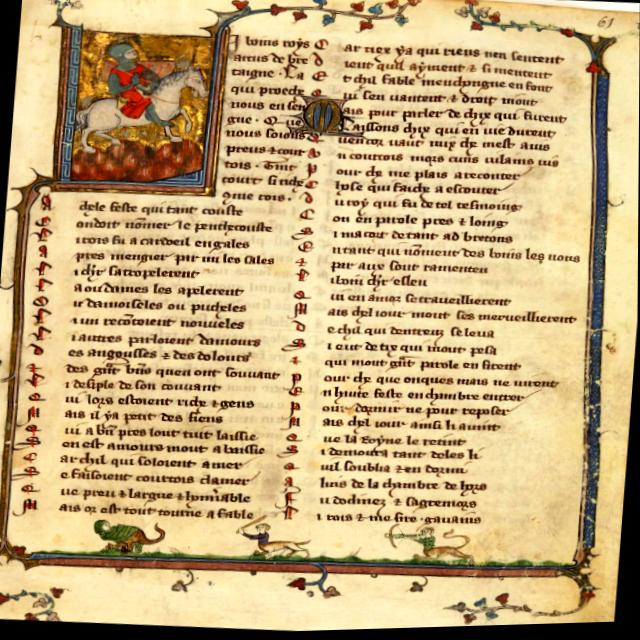 61
Artus roys
artus de bre
taigne · La
qui proece
nous ensen
gne · Que
nous soions
preus & cour
tois · Tint
court si riche
Que rois ·
dele feste qui tant couste
condoit nomer le penthecouste
i rois fu a cardoeil en gales
pres mengier par mi les sales
i chevalier satropelerent
a ou dames les apelerent
u damoiseles ou pucheles
i un recontoient nouueles
i autres parloient damours
es angousses & des dolours
des grans biens quen ont souuant
i desiple de son couuant
ui lors estoient riche & gens
ais il ya petit des siens
ui a bien pres lont tuit laissie
en est amours mout abaissie
ar chil qui soloient amer
e faisoient courtois clamer
ue preu & largue & hounerable
ais or est tout tourne a fable
ar chiex ya qui riens nen sentent
ient quil ayment & si mentent
t chil fable menchongne en font
ui sen uantent & droit nont
ais pour parler de chix qui furent
Laissons chix qui en uie durent
uencor uaut mix che mest auis
n courtois mors cuns uilains uis
our che me plais a reconter
hose qui faiche a escouter
u roy qui fu de tel tesmoing
on en parole pres & loing
i macort de tant as bretons
u tant qui nomerent des bons les nons
par aus sont ramenteu
i boin chevalier esleu
ui en amor se trauaillierent
ais chel iour mout ses merueillierent
e chil qui dentreus se leua
i eut de tix qui mout pesa
qui mout grant parole en firent
our che que onques mais ne uirent
n haute feste en chambre entrer
our dormir ne pour reposer
ais chel iour ainsi li auint
ue la royne le retint
i demoura tant deles li
uil soublia & en dormi
luis de la chambre de hors
u dodinez & sagremors
i rois & me sire · gauains